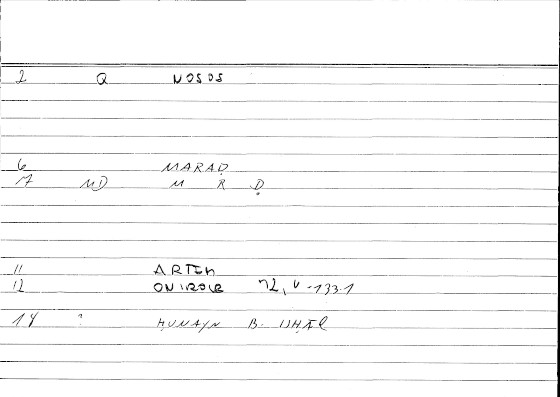 2 Q NOSOS
6 MARAḌ
17 MD M R Ḍ
11 ARTEM
12 ONIROCR 72, 4-133.1
14 ? ḤUNAYN B. ISḤĀQ